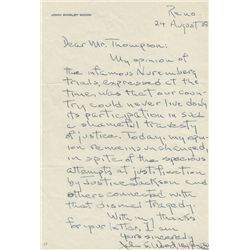 JOHN SHIRLEY WOOD
Reno
24 August
Dear Mr. Thompson:
My opinion of
the infamous Nuremberg
trials, expressed at the
times was that our coun-
try could never live down
its participation in such
a shameful travesty
of justice. Today, my opin-
ion remains unchanged,
in spite of the specious
attempts at justification
by Justice Jackson and
others connected with
that dismal tragedy.
With my thanks
for your letter, I am
yours sincerely
John S. Wood